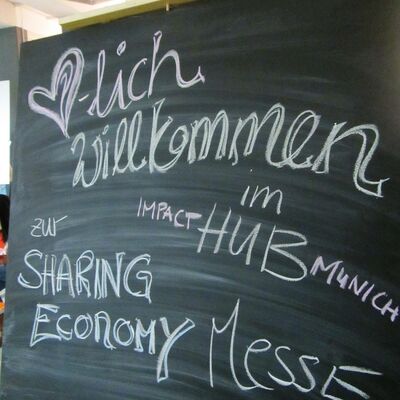 ♥-lich
willkommen
im
IMPACT HUB MUNICH
zur
SHARING
ECONOMY MESSE